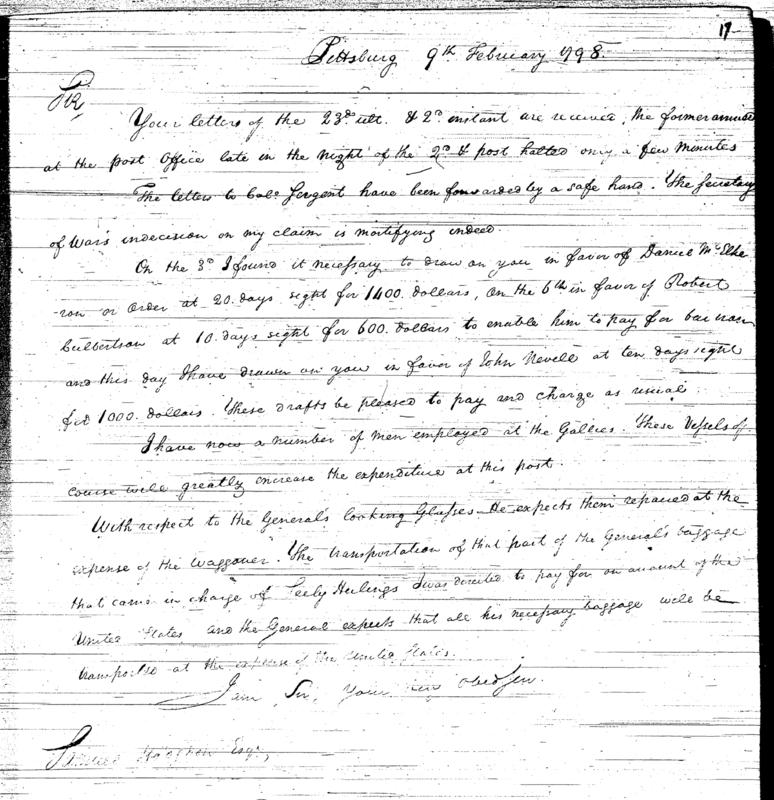 17
Pittsburg 9th February 1798.
Sir,
Your letters of the 23d ult. & 2d instant are received, the former arrived
at the post office late in the night of the 2d & post halted only a few minutes
The letters to Colo. Sergent have been forwarded by a safe hand. The Secretary
of War's indecision on my claim is mortifying indeed.
On the 3d I found it necessary to draw on you in favor of Daniel McElhe
-ron or order at 20. days sight for 1400. dollars, on the 6th in favor of Robert
Culbertson at 10. days sight for 600. dollars to enable him to pay for bar iron
and this day I have drawn on you in favor of John Nevell at ten days sight
for 1000. dollars. These drafts be pleased to pay and charge as usual
I have now a number of men employed at the Gallies. These Vessels of
course will greatly encrease the expenditure at this post.
With respect to the General's looking Glasses He expects them repaired at the
expense of the Waggoner. The transportation of that part of the General's baggage
that came in charge of Seely Heulings I was directed to pay for on account of the
United States and the General expects that all his necessary baggage will be
transported at the expense of the United States.
I am Sir, Your Obed Serv.
Samuel Hodgdon Esqr,